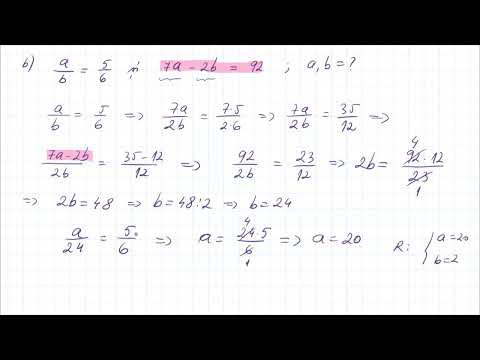 b) a/b = 5/6 și 7a - 2b = 92 ; a, b = ?
a/b = 5/6 => 7a/2b = 7·5/2·6 => 7a/2b = 35/12 =>
7a-2b/2b = 35-12/12 => 92/2b = 23/12 => 2b = 92·12/23 4 1
=> 2b = 48 => b = 48:2 => b = 24
a/24 = 5/6 => a = 24·5/6 4 1 => a = 20 R: { a = 20
b = 2